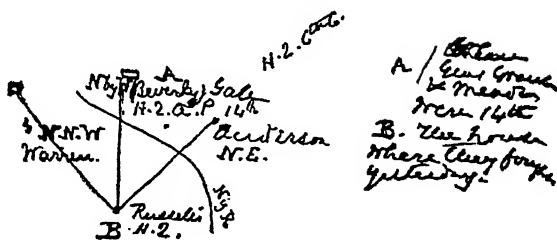 H.2. 6th C.
A
N by
Beverly's Gate
H.2. A.P. 14th
N.N.W
Warren.
Anderson
N.E.
Russell's
B. H.2.
A
Genl Grant
& Meade's
Were 14th
B. The house
where they fought
yesterday.